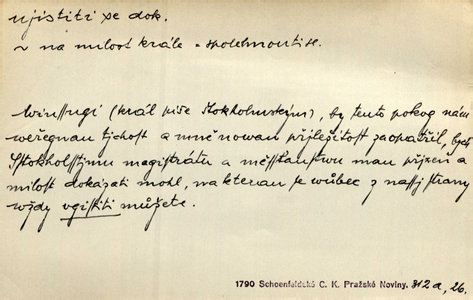 ujistiti se dok.
~ na milost krále = spolehnouti se.
winssugi (král píše Stokholmským), by tento pokog nám
weřegnau tichost a mně nowau přjležitost zaopatřil, bych
Stokholsstjmu magistrátu a měsstianstwu mau přjzeň a
milost dokázati mohl, na kterau se wůbec z nassj strany
wždy ugistiti můžete.
1790 Schoenfeldské C. K. Pražské Noviny. 312a, 26.